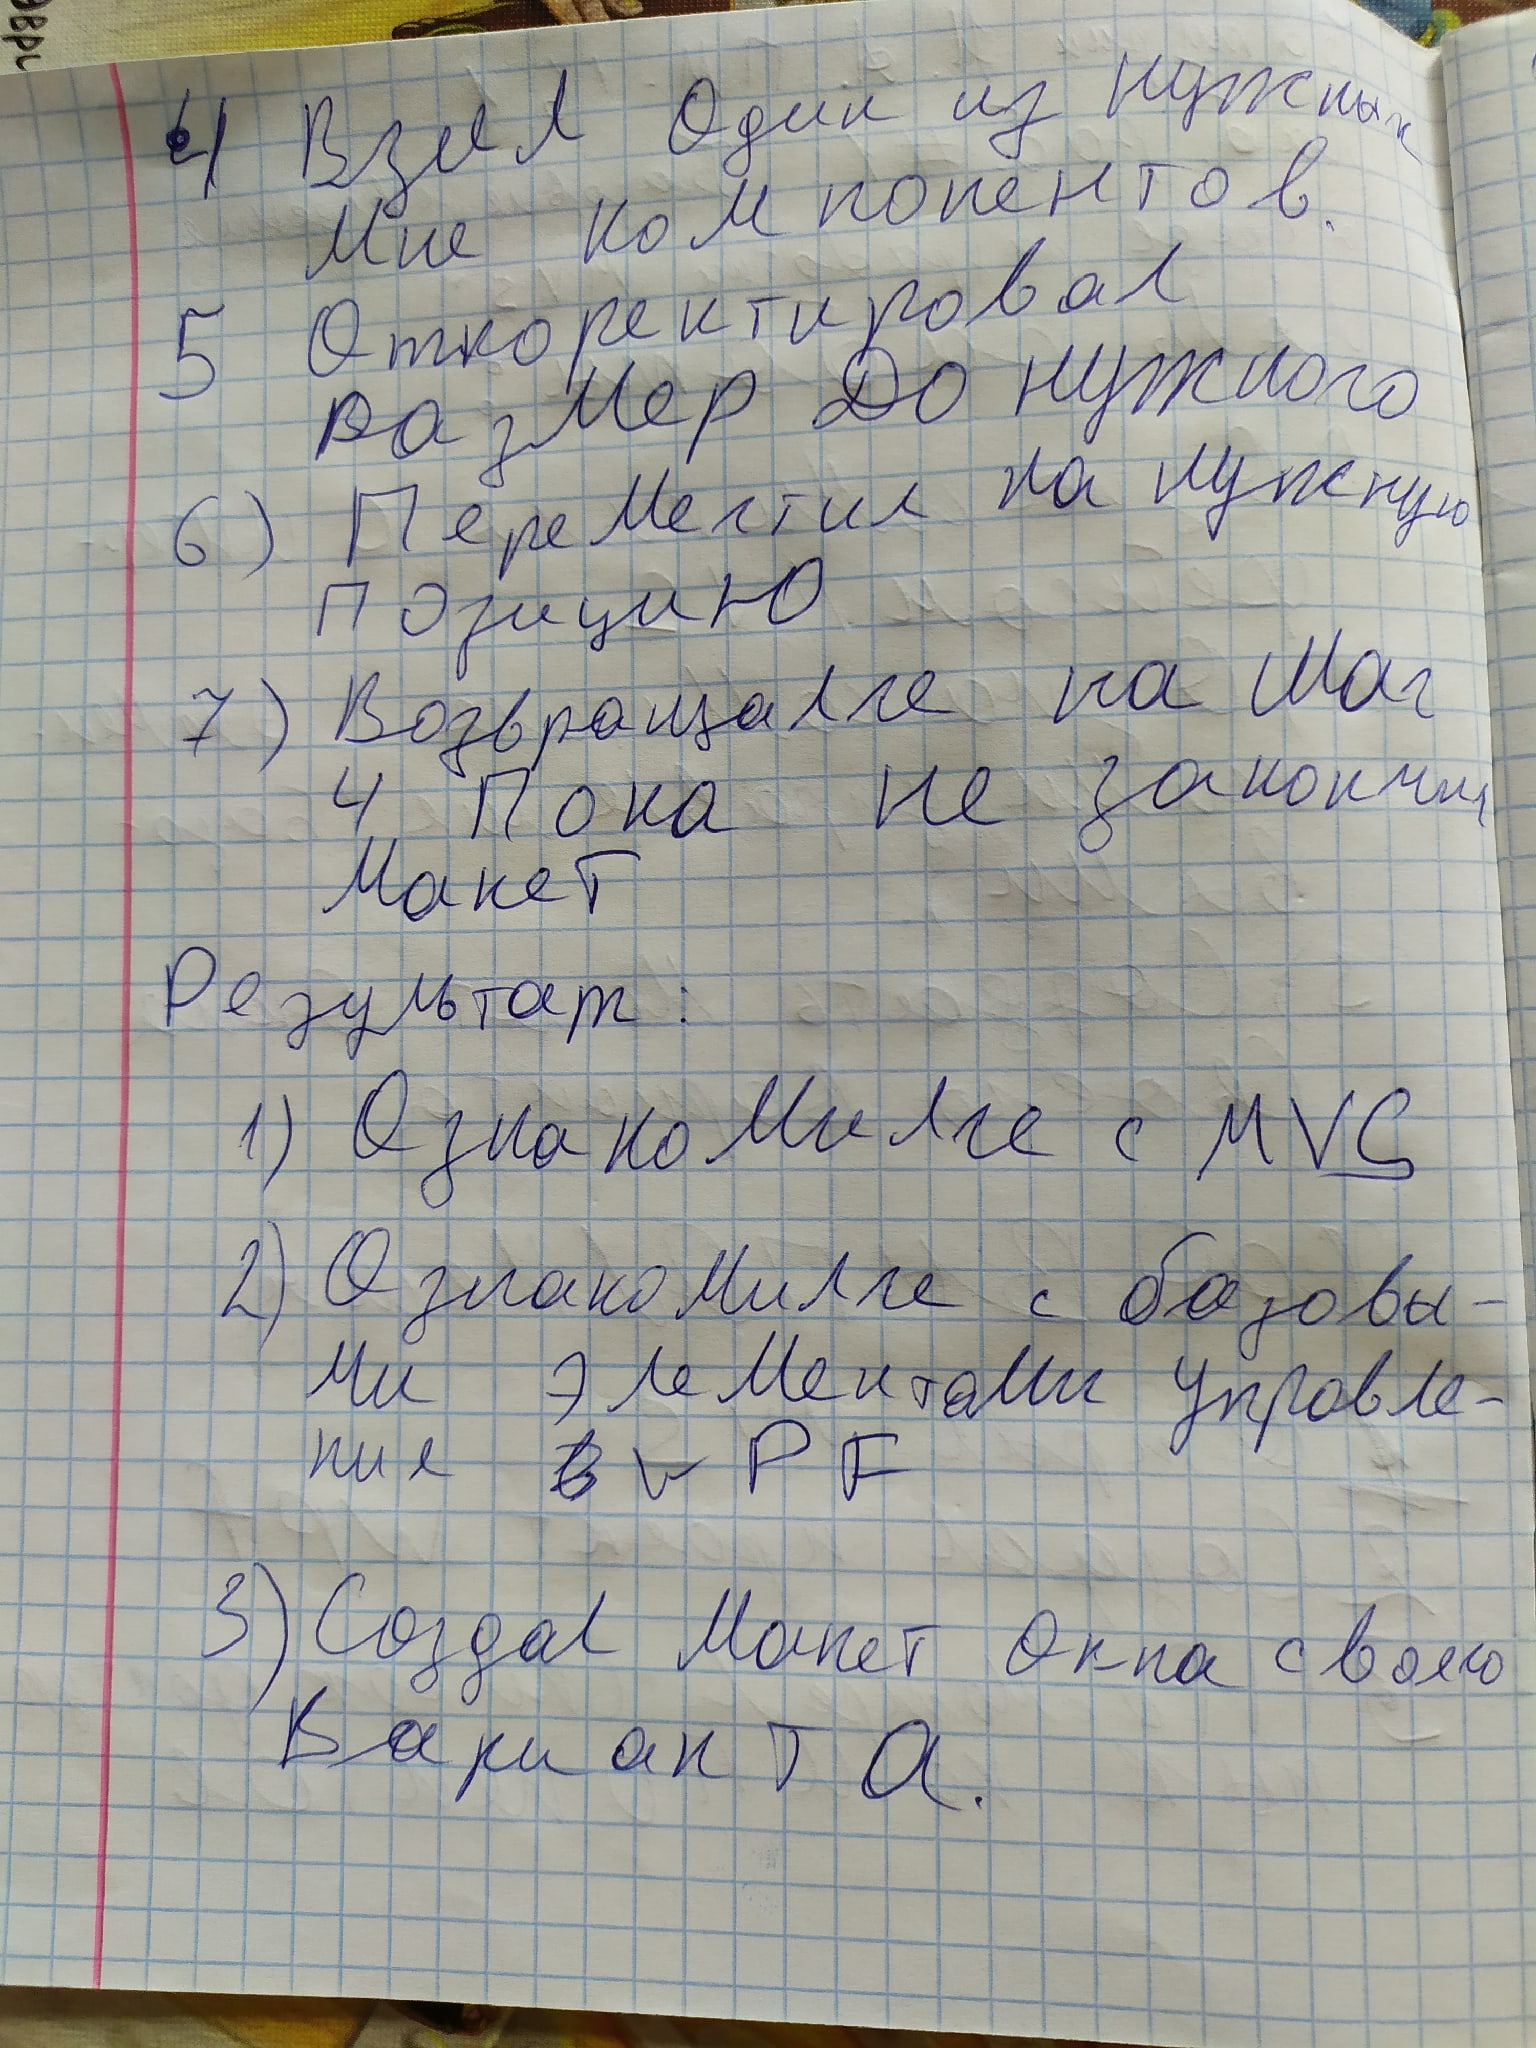 4 Взял Один из нужных
мне компонентов.
5 Откоректировал
размер до нужного
6) Переместил на нужную
позицию
7) Возвращался на шаг
4 Пока не закончил
Макет
Результат:
1) Ознакомился с MVS
2) Ознакомился с базовы-
ми элементами управле-
ния в WPF
3) Создал Макет Окна своего
Варианта.